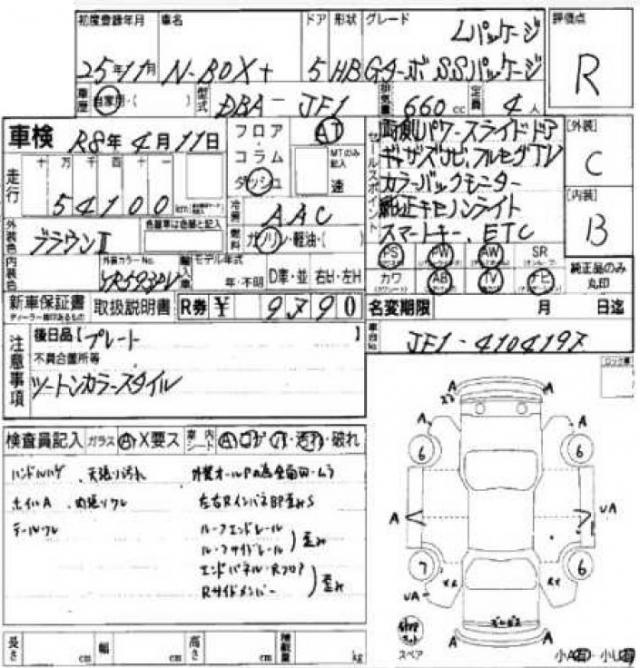 初度登録年月 車名 ドア 形状 グレード 評価点
Lパッケージ
25年11月 N-BOX+ 5 HB Gターボ SSパッケージ R
車歴 自家用・( ) 型式 DBA-JF1 排気量 660 cc 定員 4 人
車検 R8年4月11日 フロア AT
コラム MTのみ記入
ダッシュ 速
走行 十 万 千 百 十 一
54100 km
セールスポイント
両側パワースライドドア
ギャザズナビ、フルセグTV
カラーバックモニター
純正キセノンライト
スマートキー、ETC
[外装] C
[内装] B
冷房 AAC
外装色 ブラウンⅡ 色替車は色替と記入
燃料 ガソリン・軽油・( )
内装色 外装カラーNo. YR593PV 輸入車 モデル年式
年・不明 D車・並 右H・左H
PS PW AW SR
カワ AB TV ナビ
純正品のみ丸印
新車保証書 取扱説明書 R券 ¥ 9790
ディーラー捺印あるもの
名変期限 月 日迄
車台No. JF1-4104197
注意事項
後日品【プレート 】
不具合箇所等
ツートンカラースタイル
ロック車
検査員記入 ガラス A・X要ス 車内シート A・コゲ・汚れ・破れ
ハンドルハゲ 天張り汚れ
ホイルA 内張りワレ
テールワレ
左右RインパネBP歪みS
ルーフエンドレール
ルーフサイドレール
歪み
エンドパネル・Rフロア
Rサイドメンバー
歪み
A
A A
6 6
A UA
7 6
UA
A A
スペア
長さ cm 幅 cm 高さ cm 積載量 kg